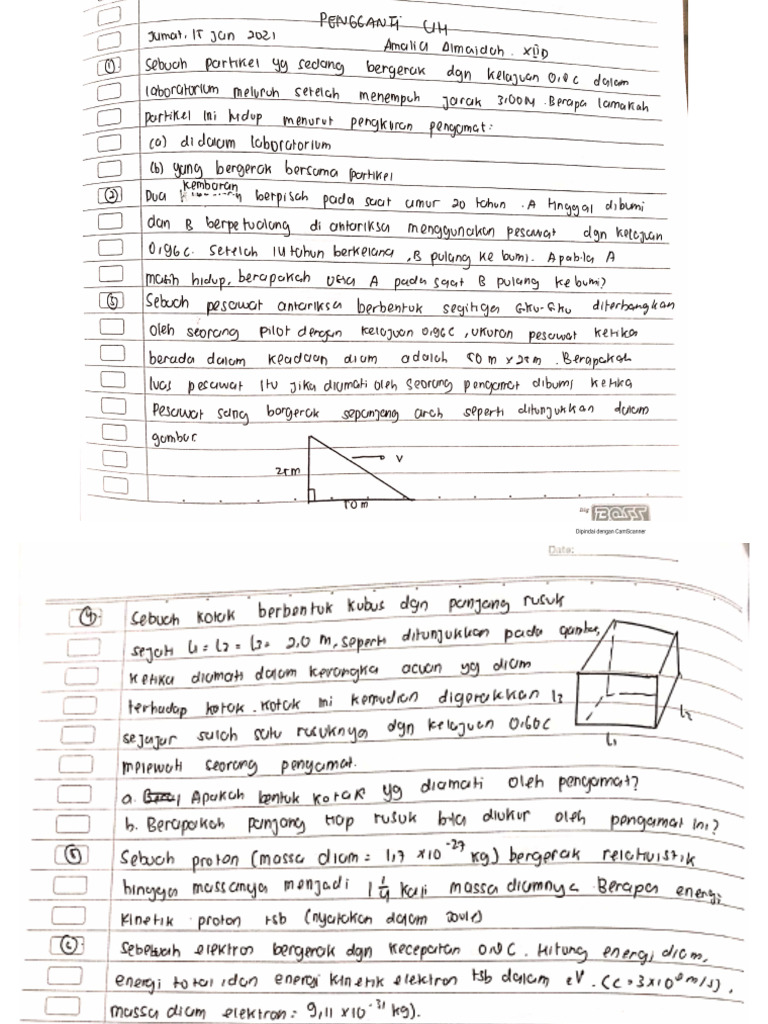 PENGGANTI UH
Jumat, 15 Jan 2021
Amalia Almaidah. XIID
① Sebuah partikel yg sedang bergerak dgn kelajuan 0,8 c dalam
laboratorium meluruh setelah menempuh jarak 3,00 M. Berapa lamakah
partikel ini hidup menurut pengkuran pengamat:
(a) di dalam laboratorium
(b) yang bergerak bersama partikel
② Dua kembaran berpisah pada saat umur 20 tahun. A tinggal di bumi
dan B berpetualang di antariksa menggunakan pesawat dgn kelajuan
0,96 c. Setelah 14 tahun berkelana, B pulang ke bumi. Apabila A
masih hidup, berapakah usia A pada saat B pulang ke bumi?
③ Sebuah pesawat antariksa berbentuk segitiga siku-siku diterbangkan
oleh seorang pilot dengan kelajuan 0,96 C, ukuran pesawat ketika
berada dalam keadaan diam adalah 50 m x 25 m. Berapakah
luas pesawat itu jika diamati oleh seorang pengamat dibumi ketika
Pesawat sang bergerak sepanjang arah seperti ditunjukkan dalam
gambar.
V
25 m
50 m
Big BOSS
Dipindai dengan CamScanner
Date:
④ Sebuah kotak berbentuk kubus dgn panjang rusuk
sejati L1 = L2 = L3 = 2,0 m, seperti ditunjukkan pada gambar,
ketika diamati dalam kerangka acuan yg diam
terhadap kotak. Kotak ini kemudian digerakkan L3
sejajar salah satu rusuknya dgn kelajuan 0,60 C
L2
L1
melewati seorang pengamat.
a. Apakah bentuk kotak yg diamati oleh pengamat?
b. Berapakah panjang tiap rusuk bila diukur oleh pengamat ini?
⑤ Sebuah proton (massa diam = 1,7 x 10⁻²⁷ kg) bergerak relativistik
hingga massanya menjadi 1 1/4 kali massa diamnya. Berapa energi
kinetik proton tsb (nyatakan dalam joule)
⑥ Sebuah elektron bergerak dgn kecepatan C. Hitung energi diam,
energi total, dan energi kinetik elektron tsb dalam eV. (C = 3 x 10⁸ m/s),
massa diam elektron = 9,11 x 10⁻³¹ kg).